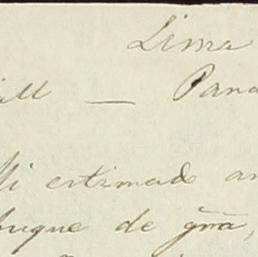 Lima
ill — Pana
Mi estimado am
buque de gũa,